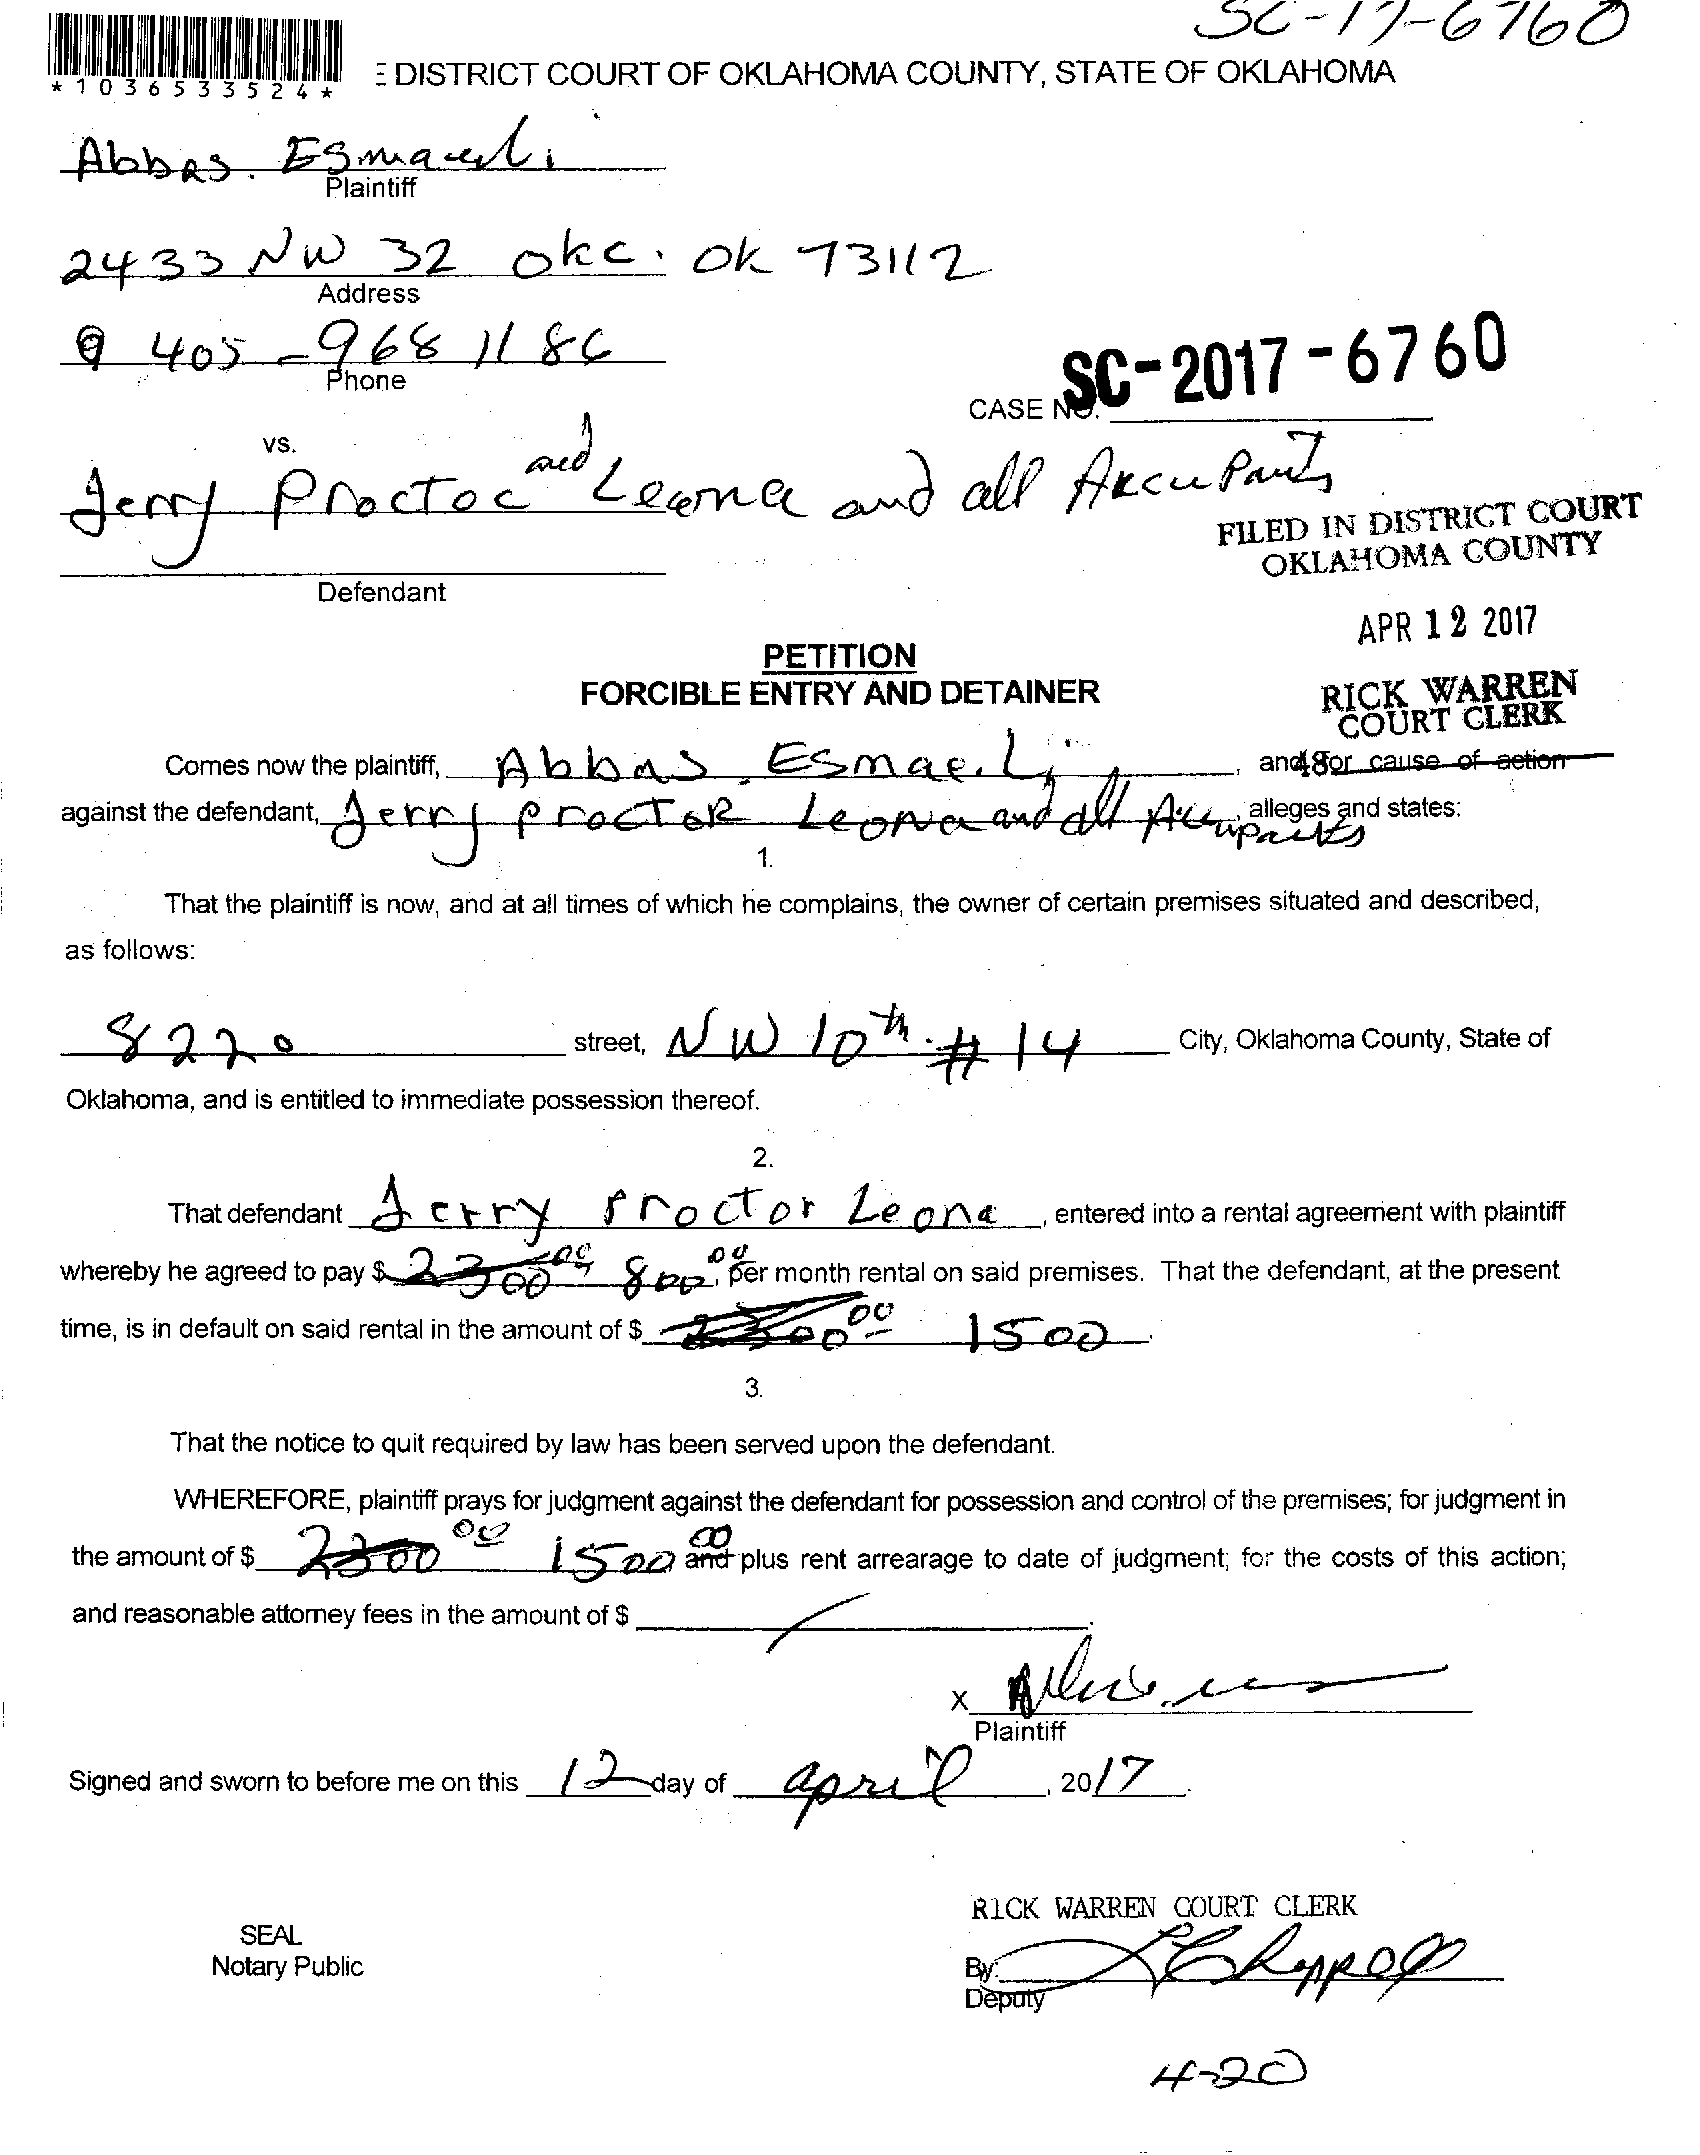 SC-17-6760
*1036533524*
E DISTRICT COURT OF OKLAHOMA COUNTY, STATE OF OKLAHOMA
Abbas. Esmaeili
Plaintiff
2433 NW 32 OKC. OK 73112
Address
405-968 1186
Phone
SC-2017-6760
CASE NO.
vs.
Jerry Proctoc and Leona and all Accupants
FILED IN DISTRICT COURT
OKLAHOMA COUNTY
Defendant
APR 12 2017
PETITION
FORCIBLE ENTRY AND DETAINER
RICK WARREN
COURT CLERK
Comes now the plaintiff, Abbas. Esmaeili, and for cause of action
48
against the defendant, Jerry Proctor Leona and all Accupants, alleges and states:
1.
That the plaintiff is now, and at all times of which he complains, the owner of certain premises situated and described,
as follows:
8220 street, NW 10th #14 City, Oklahoma County, State of
Oklahoma, and is entitled to immediate possession thereof.
2.
That defendant Jerry Proctor Leona, entered into a rental agreement with plaintiff
whereby he agreed to pay $ 2300.00 800.00, per month rental on said premises. That the defendant, at the present
time, is in default on said rental in the amount of $ 2300.00 1500.
3.
That the notice to quit required by law has been served upon the defendant.
WHEREFORE, plaintiff prays for judgment against the defendant for possession and control of the premises; for judgment in
the amount of $ 2300.00 1500 00 and plus rent arrearage to date of judgment; for the costs of this action;
and reasonable attorney fees in the amount of $
X
Plaintiff
Signed and sworn to before me on this 12 day of april, 2017.
RICK WARREN COURT CLERK
SEAL
Notary Public
By:
Deputy
4-20